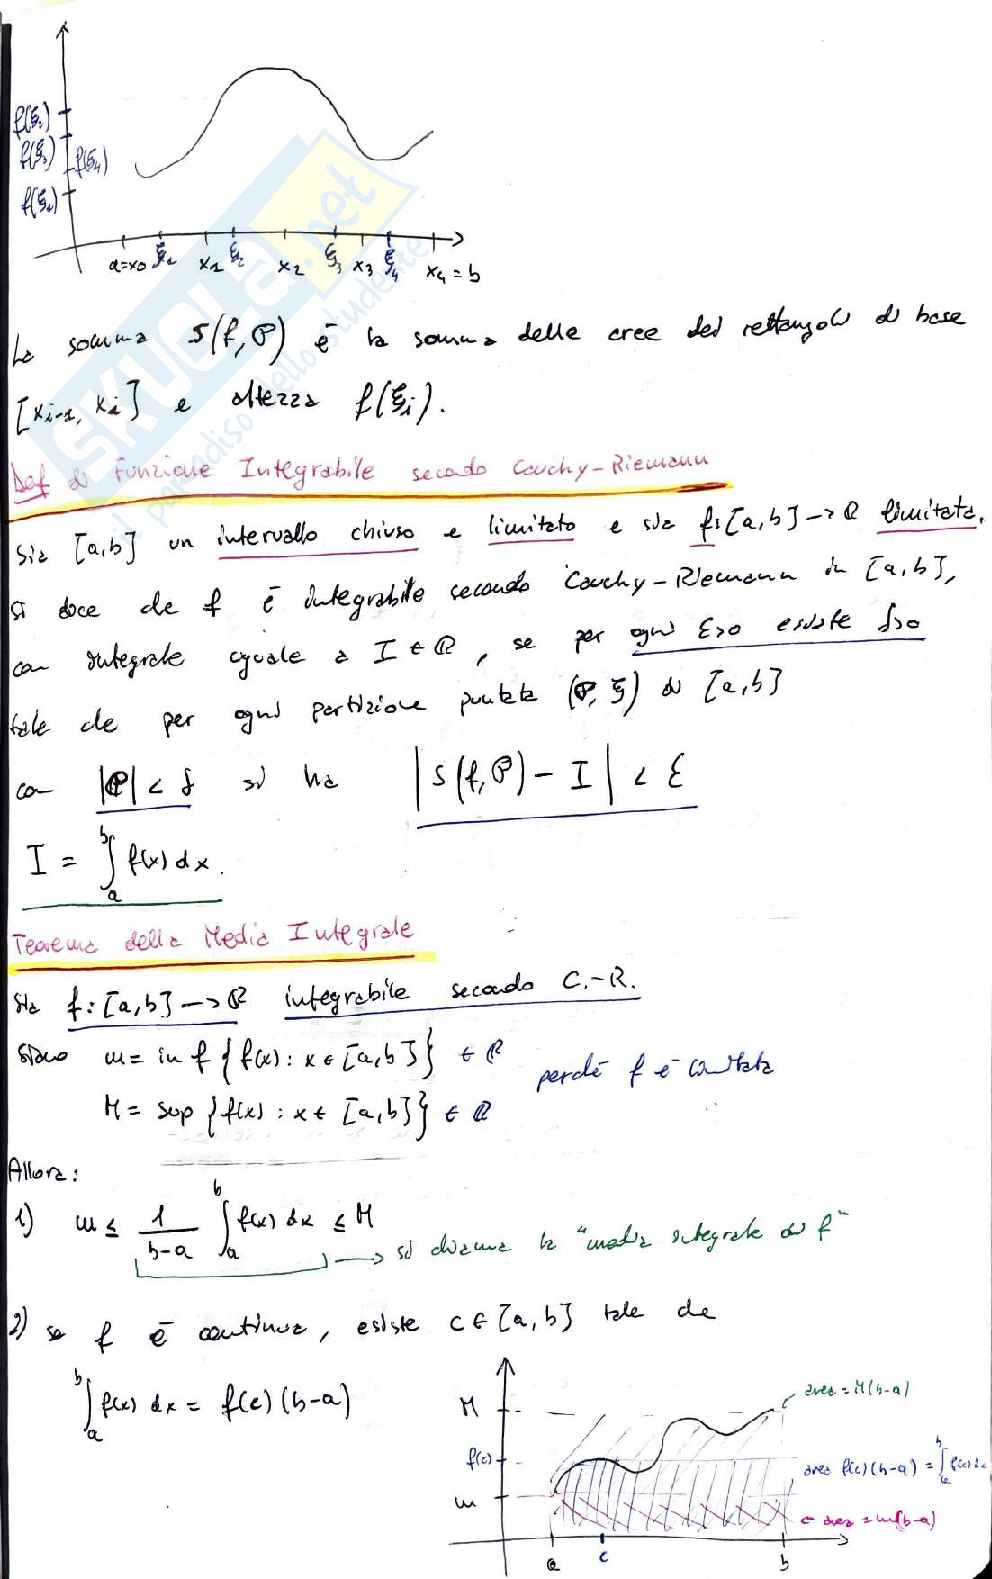 f(ξ₂)
f(ξ₃)
f(ξ₄)
f(ξ₁)
a=x₀ ξ₁ x₁ ξ₂ x₂ ξ₃ x₃ ξ₄ x₄ = b
SKUOLA.net
il paradiso dello studente
La somma S(f,P) è la somma delle aree dei rettangoli di base
[xᵢ₋₁, xᵢ] e altezza f(ξᵢ).
Def di Funzione Integrabile secondo Cauchy-Riemann
Sia [a,b] un intervallo chiuso e limitato e sia f:[a,b]→ℝ limitata.
Si dice che f è integrabile secondo Cauchy-Riemann in [a,b],
con integrale uguale a I ∈ ℝ, se per ogni ε>0 esiste δ>0
tale che per ogni partizione puntata (P, ξ) di [a,b]
con |P| < δ si ha |S(f,P) - I| < ε
I = ∫ₐᵇ f(x) dx.
Teorema della Media Integrale
Sia f:[a,b]→ℝ integrabile secondo C.-R.
Siano m = inf {f(x) : x ∈ [a,b]} ∈ ℝ perché f è limitata
M = sup {f(x) : x ∈ [a,b]} ∈ ℝ
Allora:
1) m ≤ 1/(b-a) ∫ₐᵇ f(x) dx ≤ M
→ si chiama la "media integrale di f"
2) se f è continua, esiste c ∈ [a,b] tale che
∫ₐᵇ f(x) dx = f(c)(b-a)
M
area = M(b-a)
f(c)
area f(c)(b-a) = ∫ₐᵇ f(x) dx
m
← area = m(b-a)
a c b